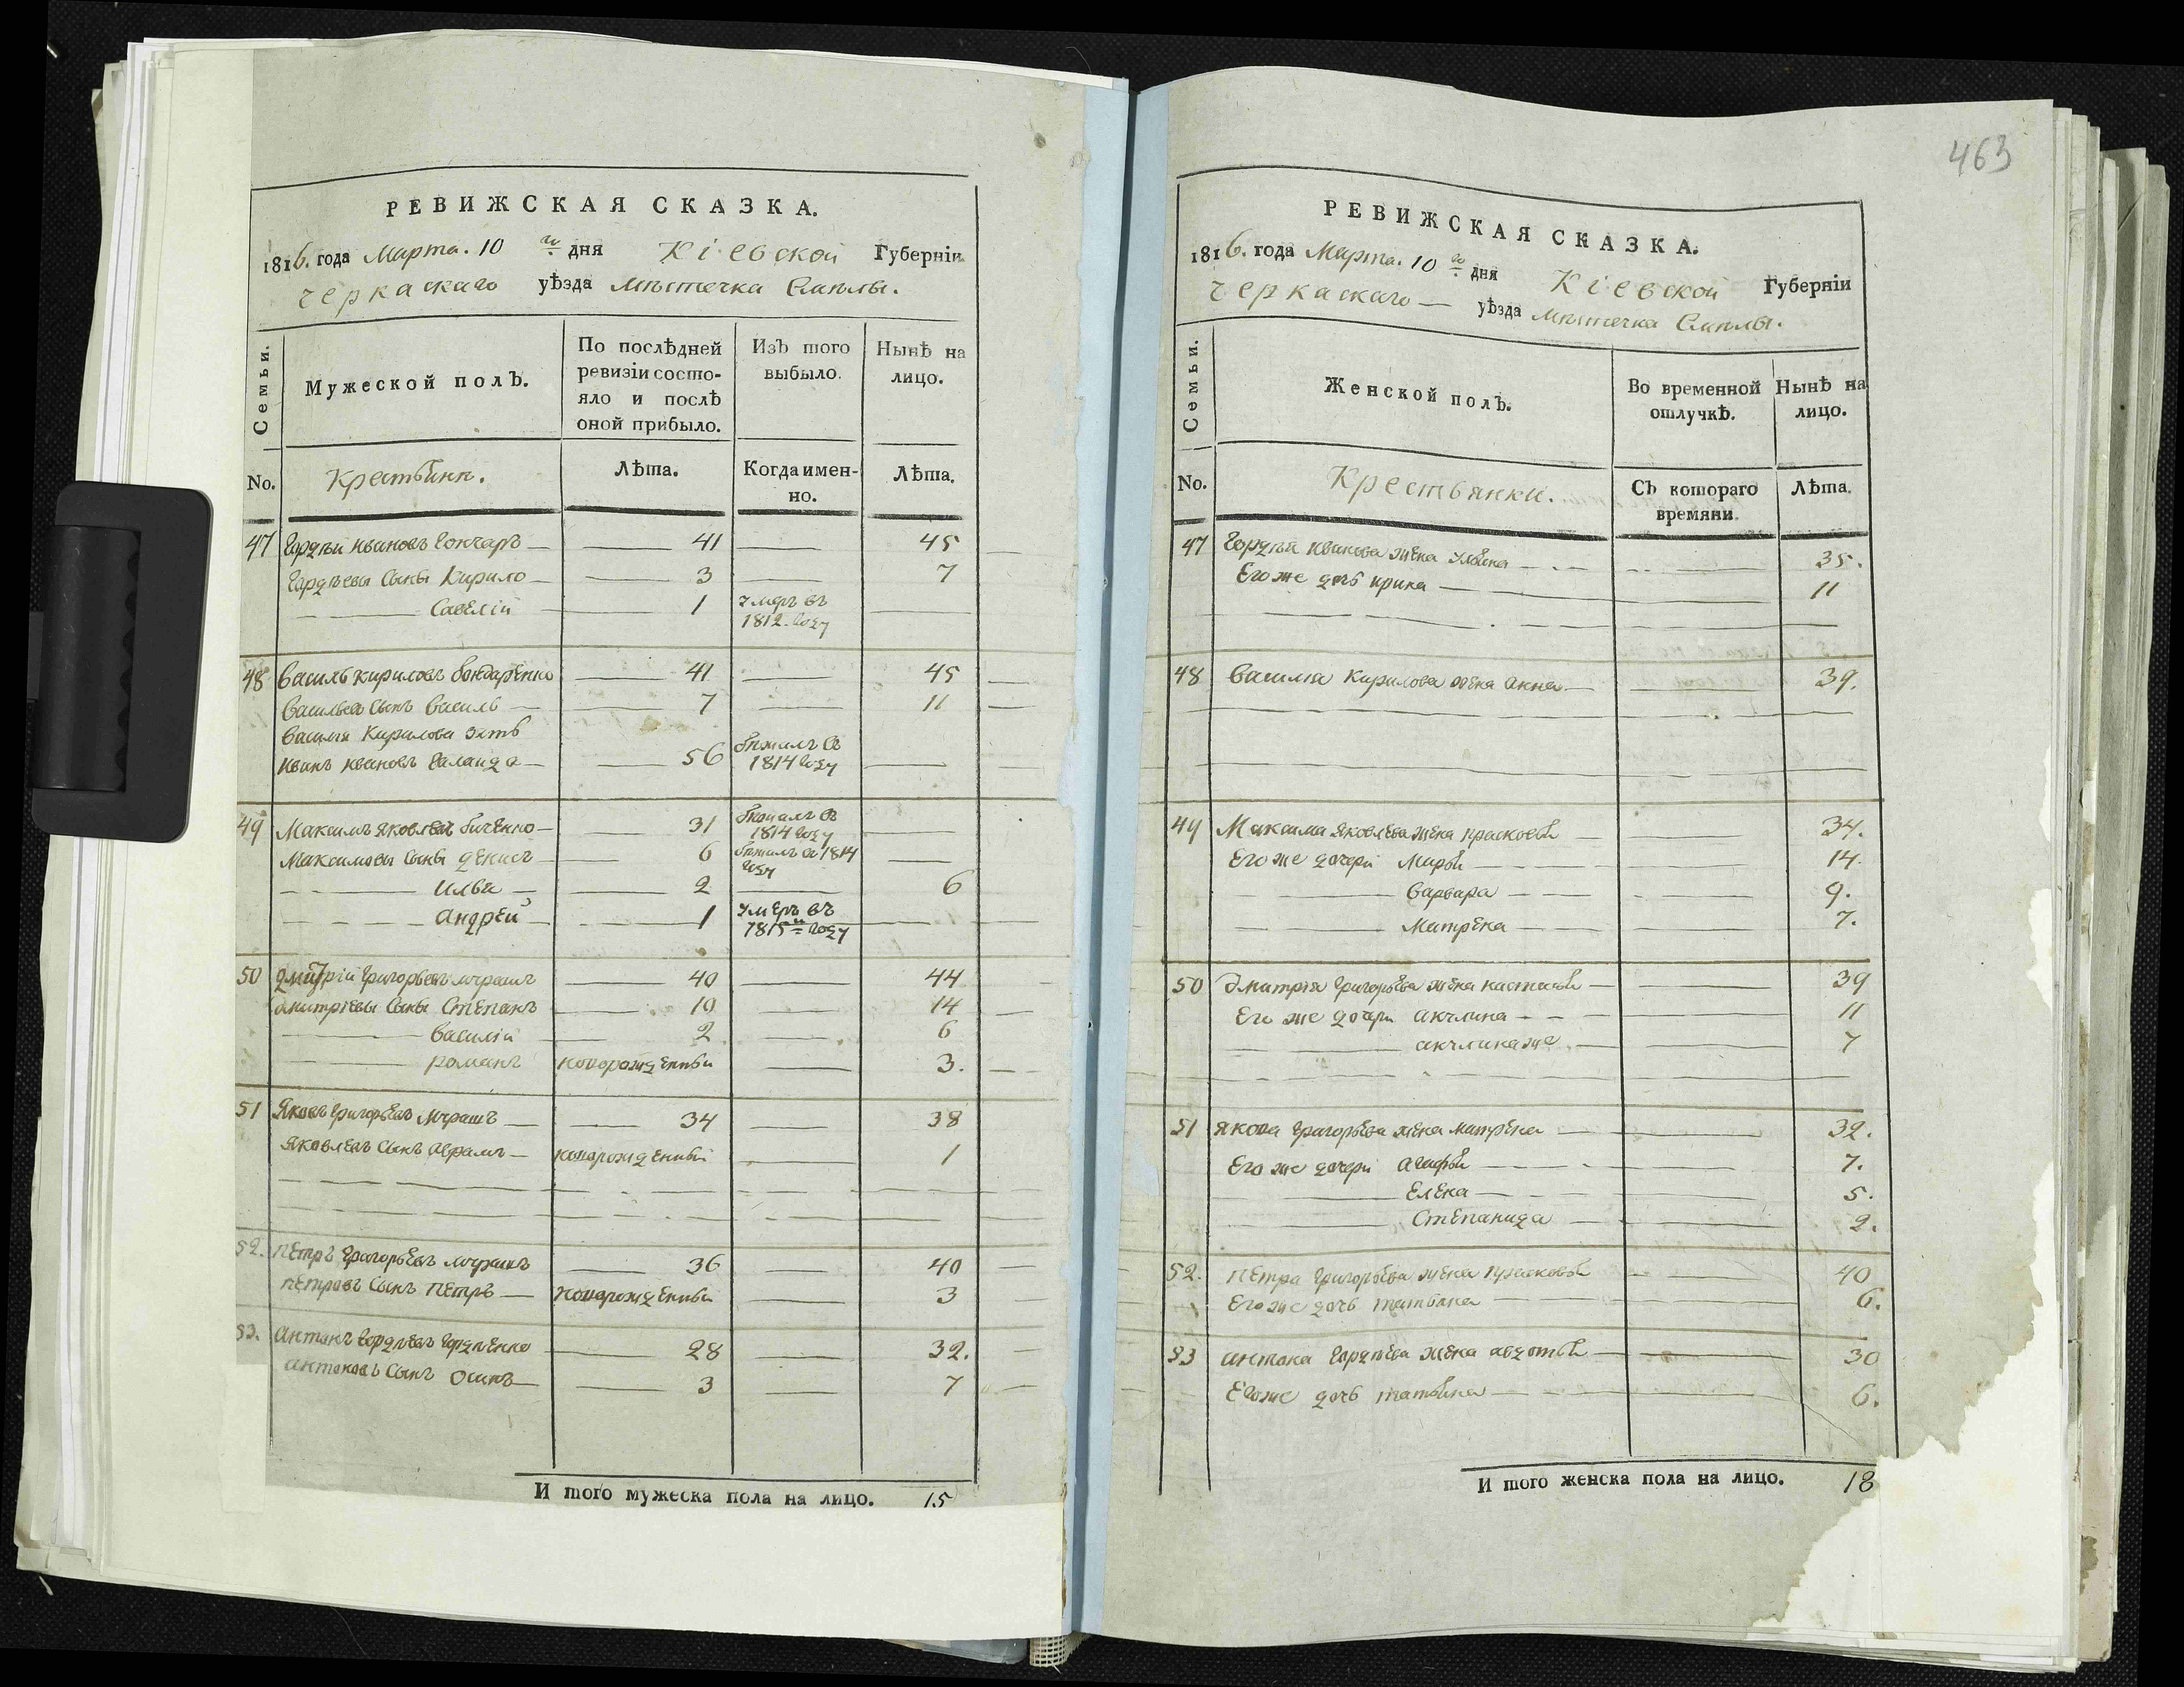 РЕВИЖСКАЯ СКАЗКА.
1816. года Марта. 10 го дня Кіевской Губерніи
Черкаскаго уѣзда мѣстечка Смѣлы.
Семьи.
Мужеской полъ.
По послѣдней ревизіи состояло и послѣ оной прибыло.
Изъ того выбыло.
Нынѣ на лицо.
No. Крестьянн. Лѣта. Когда именно. Лѣта.
47 Гордѣй Ивановъ Гончаръ 41 45
Гордѣевы сыны Кирило 3 7
Савелій 1 умеръ въ 1812. году
48 Василь Кириловъ Бондаренко 41 45
Васильевъ сынъ Василь 7 11
Василія Кирилова зять
Иванъ Ивановъ Галанда 56 бежалъ въ 1814 году
49 Максимъ Яковлевъ Биченко 31 бежалъ въ 1814 году
Максимовы сыны Денисъ 6 бежалъ въ 1814 году
Илья 2 6
Андрей 1 умеръ въ 1815 м году
50 Дмитрій Григорьевъ 40 44
Дмитріевы сыны Степанъ 10 14
Василій 2 6
Романъ новорожденный 3.
51 Яковъ Григорьевъ 34 38
Яковлевъ сынъ Аврамъ новорожденный 1
52. Петръ Григорьевъ 36 40
Петровъ сынъ Петръ новорожденный 3
53. Антонъ Гордѣевъ Гордѣенко 28 32.
Антоновъ сынъ Осипъ 3 7
И того мужеска пола на лицо. 15
463
РЕВИЖСКАЯ СКАЗКА.
1816. года Марта. 10 го дня Кіевской Губерніи
Черкаскаго уѣзда мѣстечка Смѣлы.
Семьи.
Женской полъ.
Во временной отлучкѣ.
Нынѣ на лицо.
No. Крестьянки. Съ котораго времяни. Лѣта.
47 Гордѣя Иванова жена Ульяна 35.
Его же дочь Ирина 11
48 Василія Кирилова жена Анна 39.
49 Максима Яковлева жена Прасковья 34.
Его же дочери Марья 14.
Варвара 9.
Матрена 7.
50 Дмитрія Григорьева жена Настасья 39
Его же дочери Акулина 11
Акулина же 7
51 Якова Григорьева жена Матрена 32.
Его же дочери Агафья 7.
Елена 5.
Степанида 2.
52. Петра Григорьева жена 40
Его же дочь Татьяна 6.
53 Антона Гордѣева жена Авдотья 30
Его же дочь Татьяна 6.
И того женска пола на лицо. 18